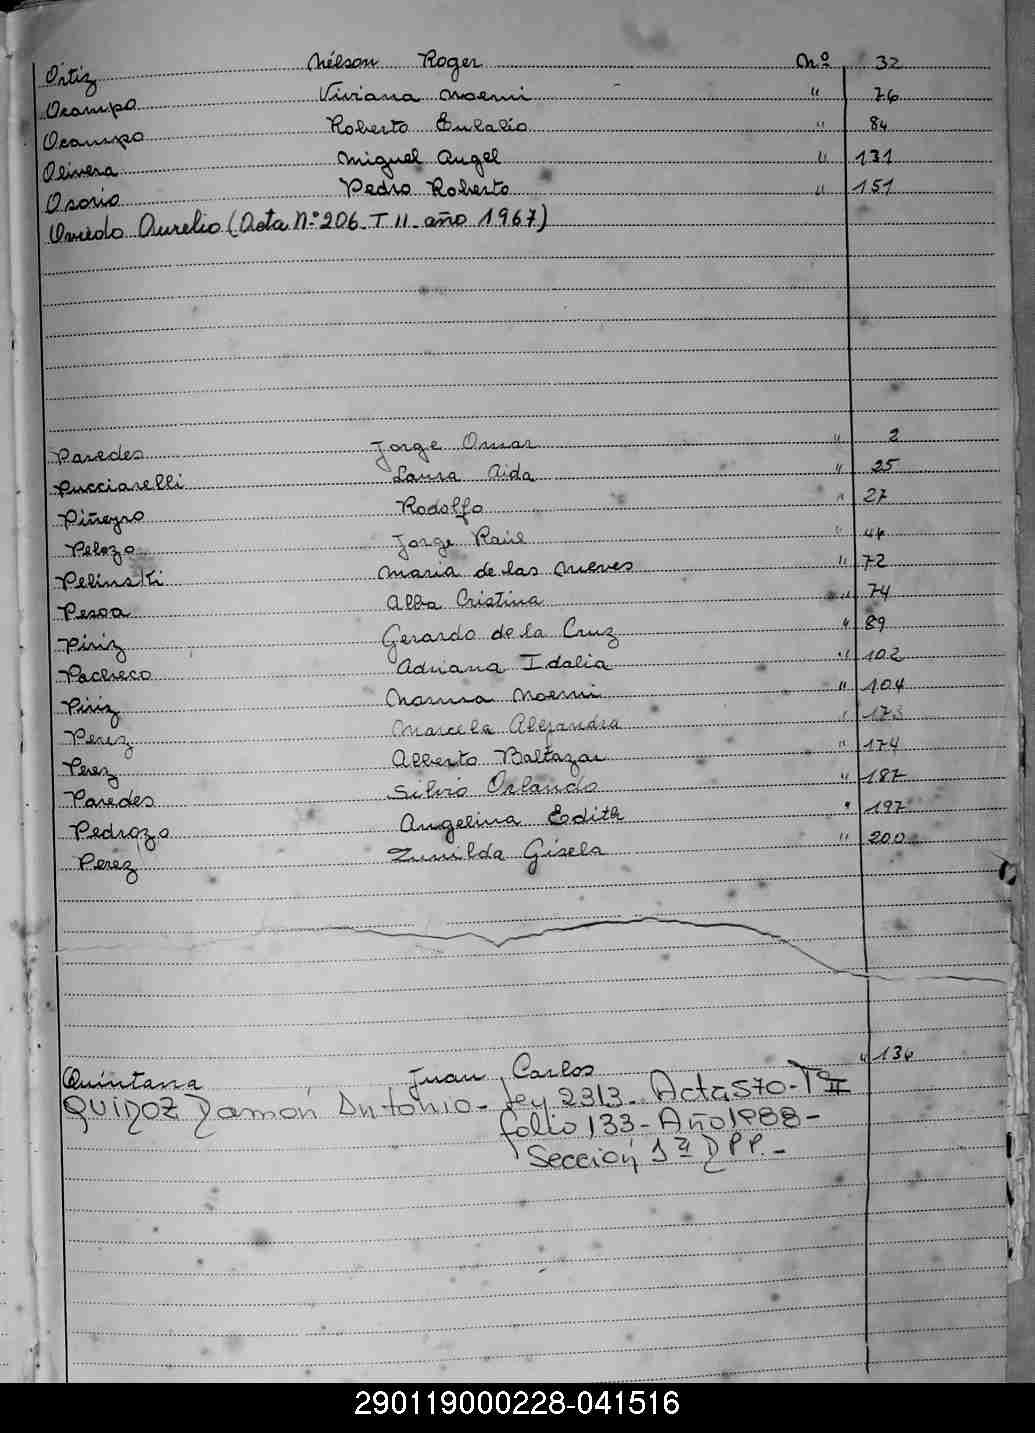 Ortiz Nélson Roger Nº 32
Ocampo Viviana Noemi " 76
Ocampo Roberto Eulalio " 84
Olivera Miguel Angel " 131
Osorio Pedro Roberto " 151
Oviedo Aurelio (Acta Nº 206 T II año 1967)
Paredes Jorge Omar " 2
Pucciarelli Laura Aida " 25
Piñeyro Rodolfo " 27
Pelozo Jorge Raúl " 44
Pelinski Maria de las Nieves " 72
Pesoa Alba Cristina " 74
Piriz Gerardo de la Cruz " 89
Pacheco Adriana Idalia " 102
Piriz Norma Noemi " 104
Perez Marcela Alejandra " 173
Perez Alberto Baltazar " 174
Paredes Silvio Orlando " 187
Pedrozo Angelina Edith " 197
Perez Zunilda Gisela " 200
Quintana Juan Carlos " 136
QUIROZ Ramón Antonio - Ley 2313 - Acta 570 - Tº II
folio 133 - Año 1988 -
Sección 1ª D P P. -
290119000228-041516